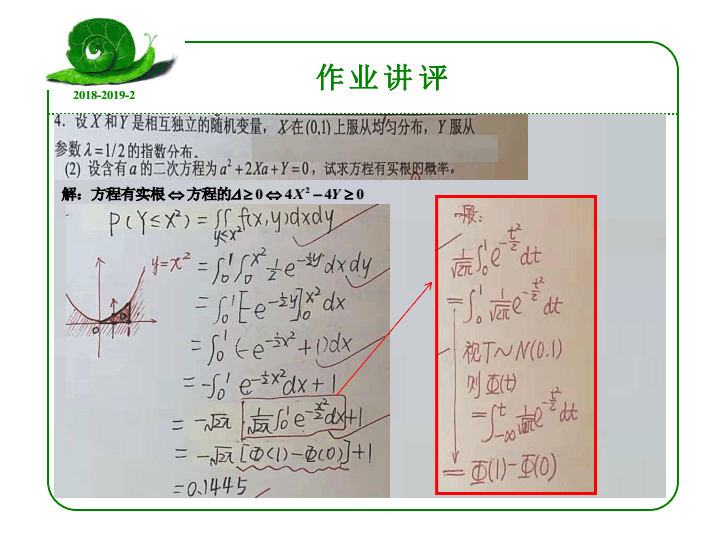 作业讲评
2018-2019-2
4. 设 X 和 Y 是相互独立的随机变量， X 在 (0,1) 上服从均匀分布， Y 服从
参数 λ=1/2 的指数分布.
(2) 设含有 a 的二次方程为 a²+2Xa+Y=0，试求方程有实根的概率。
解：方程有实根 ⇔ 方程的Δ ≥ 0 ⇔ 4X² − 4Y ≥ 0
P(Y≤X²) = ∬_{y≤x²} f(x,y)dxdy
y=x²
= ∫₀¹∫₀^{x²} ½e^{-½y}dxdy
= ∫₀¹[-e^{-½y}]₀^{x²}dx
= ∫₀¹(-e^{-½x²}+1)dx
= -∫₀¹ e^{-½x²}dx+1
= -√2π [1/√2π ∫₀¹ e^{-x²/2}dx]+1
= -√2π [Φ(1)-Φ(0)]+1
=0.1445
一般:
1/√2π ∫₀¹ e^{-t²/2}dt
=∫₀¹ 1/√2π e^{-t²/2}dt
视T~N(0.1)
则 Φ(t)
=∫_{-∞}^t 1/√2π e^{-t²/2}dt
= Φ(1)-Φ(0)